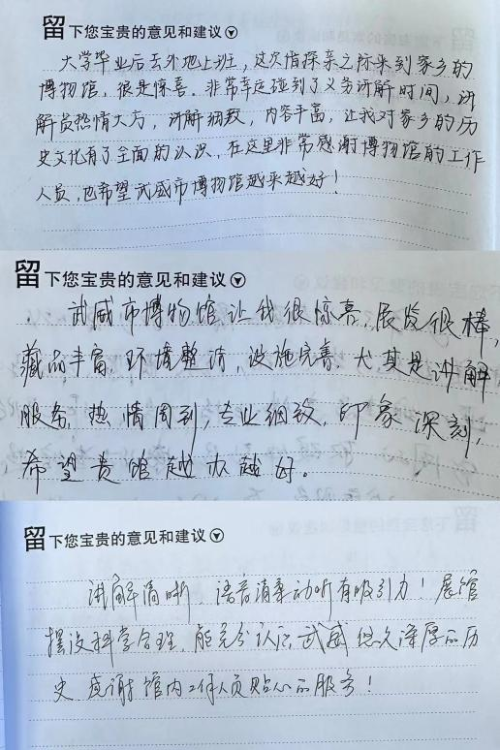 留下您宝贵的意见和建议
大学毕业后去外地上班，这次借探亲之际来到家乡的
博物馆，很是惊喜．非常幸运碰到了义务讲解时间，讲
解员热情大方，讲解细致，内容丰富，让我对家乡的历
史文化有了全面的认识．在这里非常感谢博物馆的工作
人员，也希望武威市博物馆越来越好！
留下您宝贵的意见和建议
武威市博物馆让我很惊喜，展览很棒，
藏品丰富，环境整洁，设施完善，尤其是讲解
服务，热情周到，专业细致，印象深刻，
希望贵馆越办越好。
留下您宝贵的意见和建议
讲解清晰、语音清柔动听有吸引力！展馆
摆设科学合理，能充分认识武威悠久深厚的历
史 感谢馆内工作人员贴心的服务！